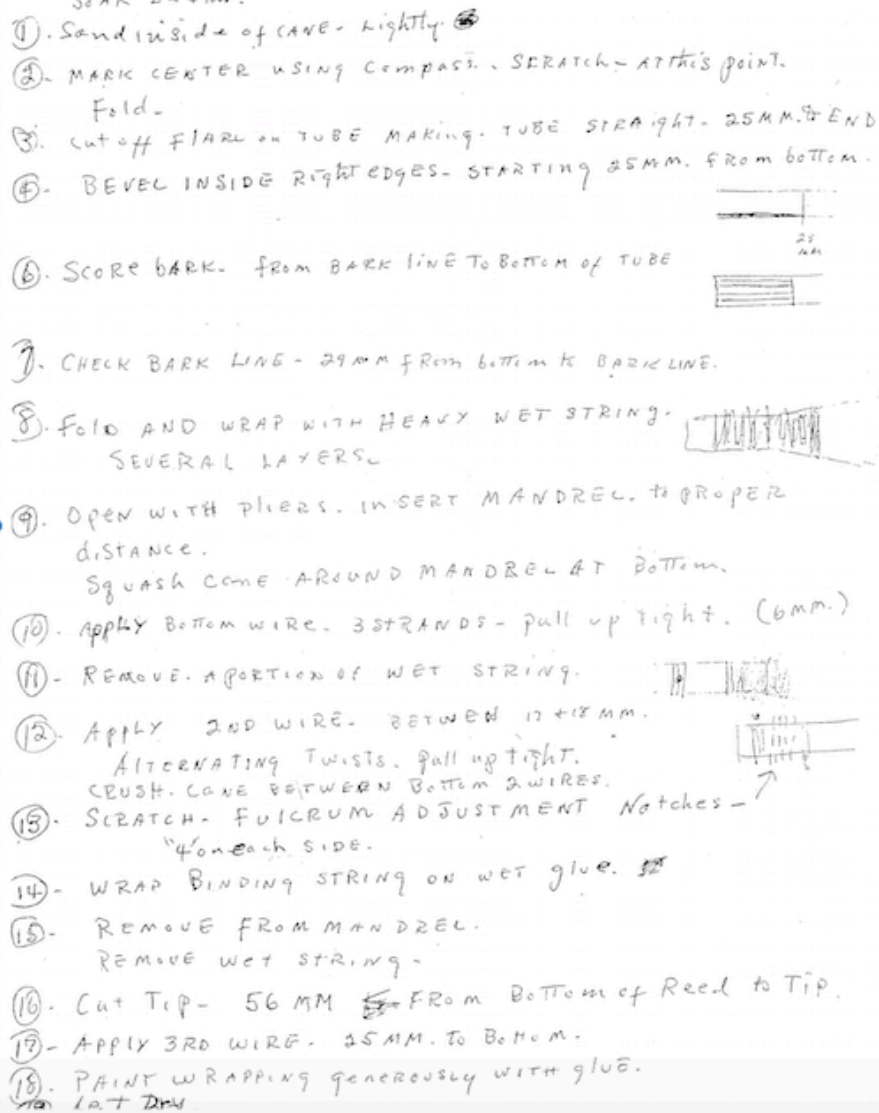 ①. Sand inside of CANE - Lightly.
②. MARK CENTER USING Compass.. SCRATCH - AT this point.
Fold-
③. Cut off FLARE on TUBE MAKing. TUBE STRAight - 25MM. END
④. BEVEL INSIDE Right EDgES - STARTINg 25MM. fROM bottom.
25
MM
⑥. SCORE bARK. fROM BARK liNE To BoTTOM of TUBE
7. CHECK BARK LINE - 29MM fRom bottom to BARK LINE.
⑧. Fold AND WRAP WITH HEAVY WET STRINg.
SEVERAL LAYERS.
⑨. OpeN WITH pliERS. INSERT MANDREL. to pROPER
diSTANCE.
Squash CANE AROUND MANDREL AT BoTTom.
⑩. ApplY BoTTom WIRE. 3 STRANDS - pull up Tight. (6mm.)
⑪ - REMOVE. A PORTION Of WET STRING.
⑫. APPLY 2ND WIRE. BETWEEN 17 + 18 MM.
AlTERNATING TWISTS. pull up tight.
CRUSH. CANE BETWEEN BoTTom 2 WIRES.
⑬. SCRATCH. FULCRUM ADJUSTMENT Notches -
"4" on each SIDE.
⑭ - WRAP BINDINg STRINg ON WET glue.
⑮ - REMOVE fROM MANDREL.
REMOVE WET STRINg -
⑯. Cut TIp - 56 MM FROM BoTTom of Reed to Tip.
⑰ - APPlY 3RD WIRE. 25MM. To BoTToM.
⑱. PAINT WRAPPINg gENEROUSLY WITH glUE.
LeT DRY